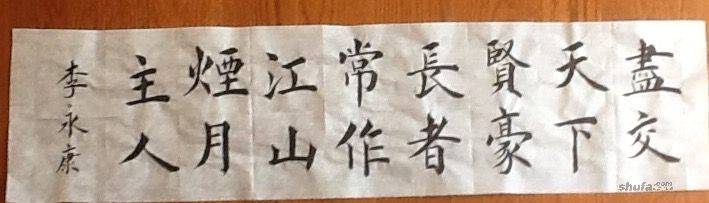 盡交
天下
賢豪
長者
常作
江山
煙月
主人
李永康
shufa.com